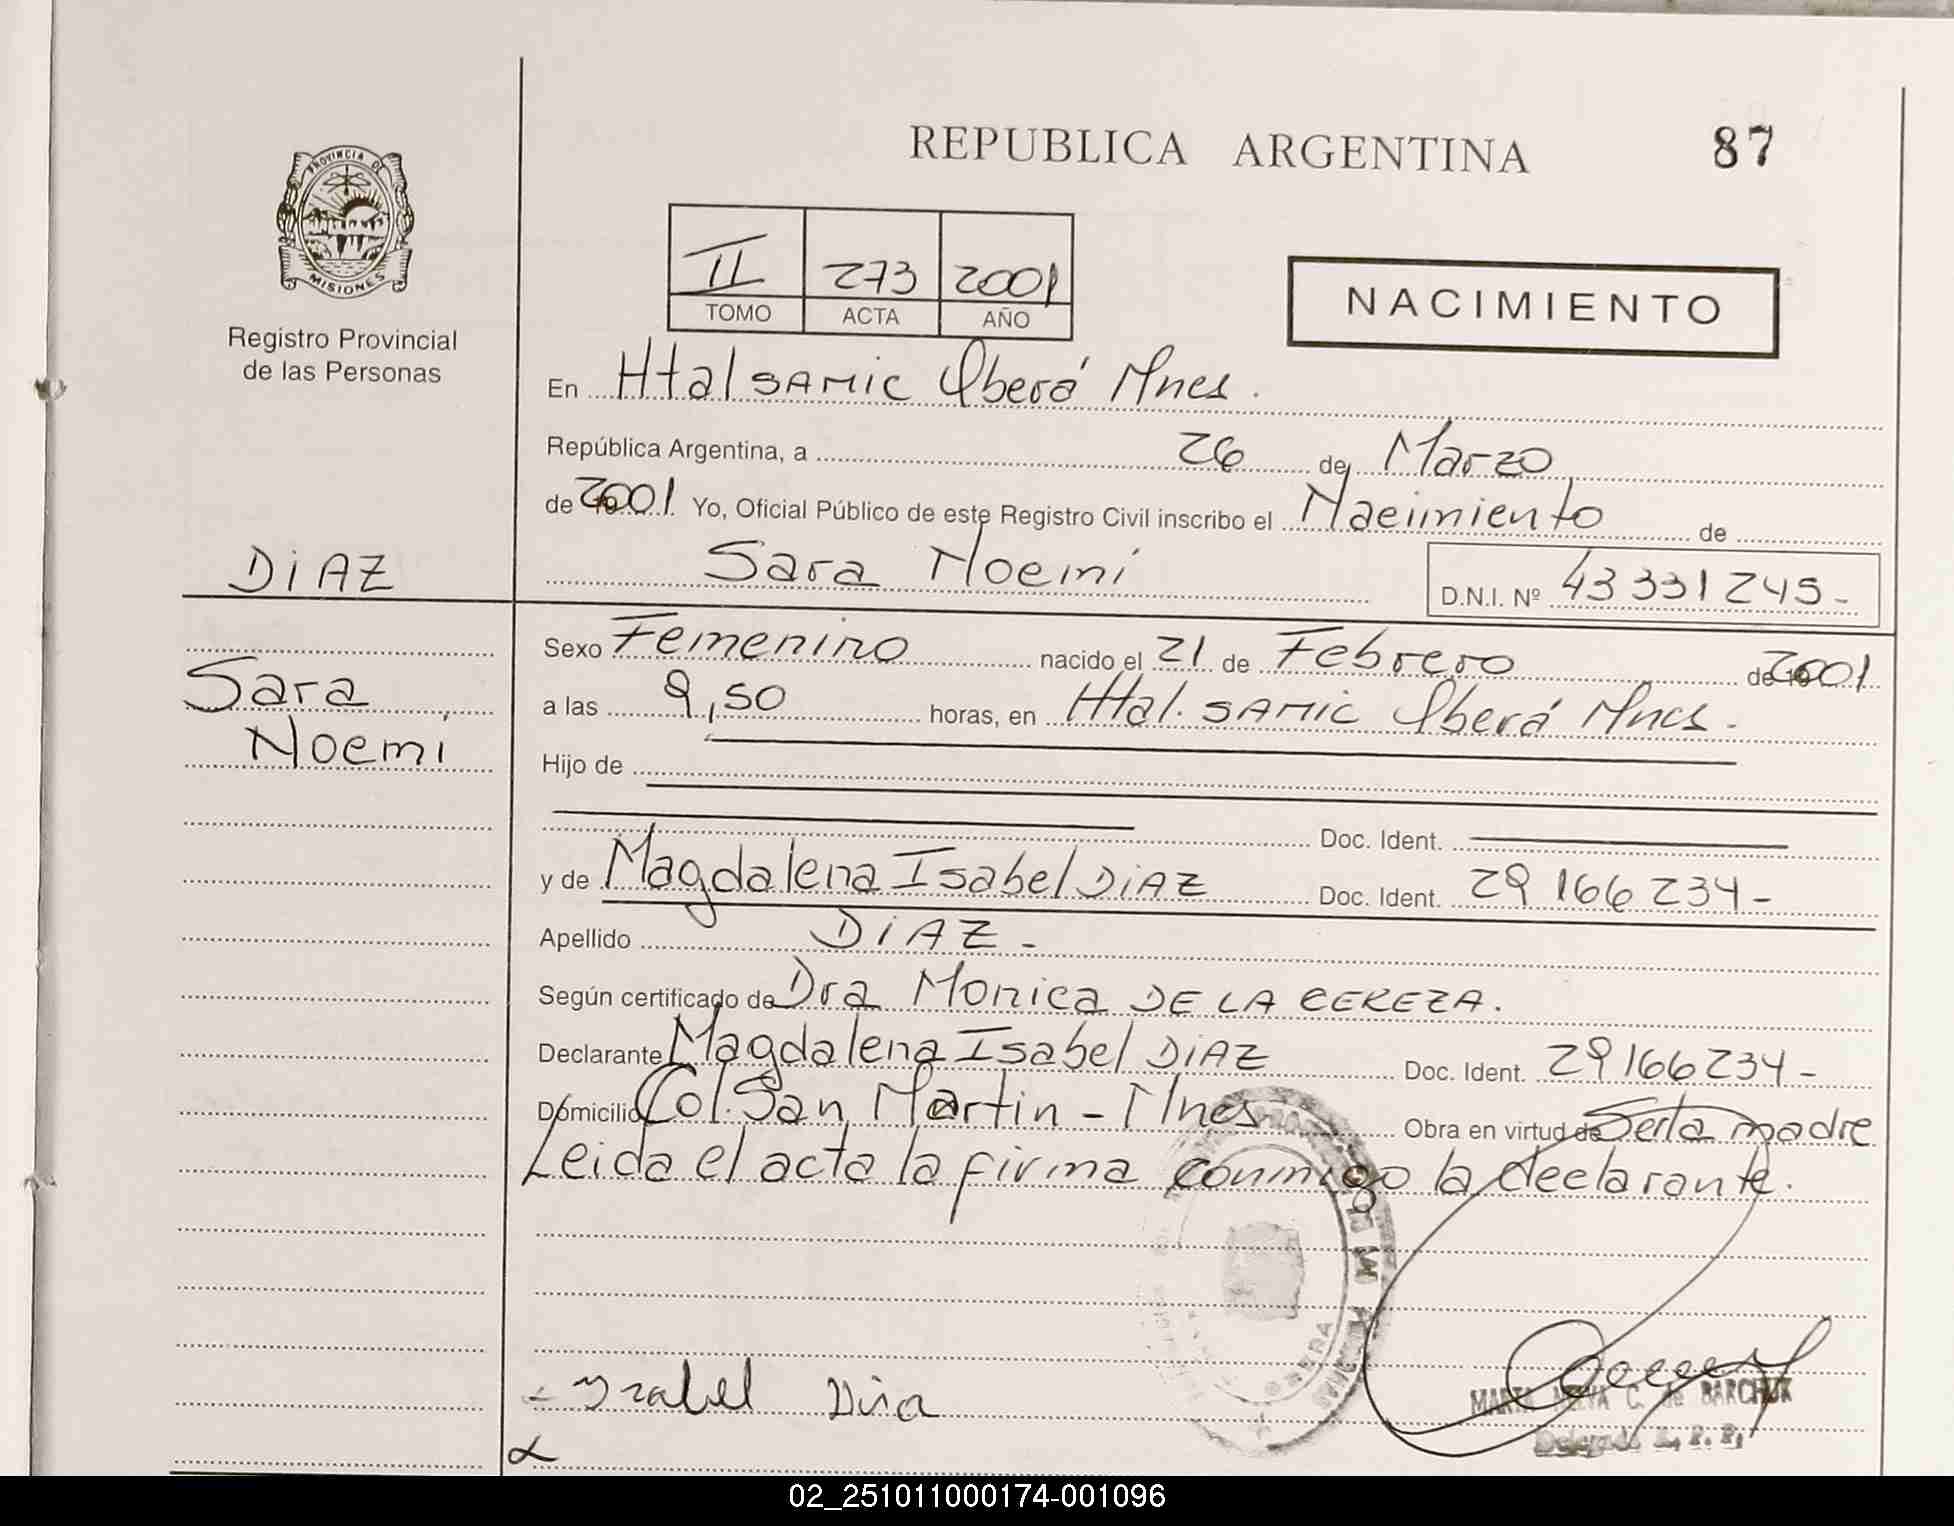 REPUBLICA ARGENTINA
87
PROVINCIA DE
MISIONES
Registro Provincial
de las Personas
II 273 2001
TOMO ACTA AÑO
NACIMIENTO
En Htal SAMIC Oberá Mnes.
República Argentina, a 26 de Marzo
de 2001 Yo, Oficial Público de este Registro Civil inscribo el Nacimiento de
Sara Noemí
D.N.I. Nº 43 331 245-
DIAZ
Sara
Noemí
Sexo Femenino nacido el 21 de Febrero de 2001
a las 9,50 horas, en Htal. SAMIC Oberá Mnes.
Hijo de
Doc. Ident.
y de Magdalena Isabel DIAZ Doc. Ident. 29 166 234-
Apellido DIAZ-
Según certificado de Dra Monica DE LA CEREZA.
Declarante Magdalena Isabel DIAZ Doc. Ident. 29 166 234-
Domicilio Col. San Martin - Mnes Obra en virtud de Ser la madre
Leida el acta la firma conmigo la declarante.
OBERA
Yzabel Dias
MARTA C. de BARCHUK
02_251011000174-001096